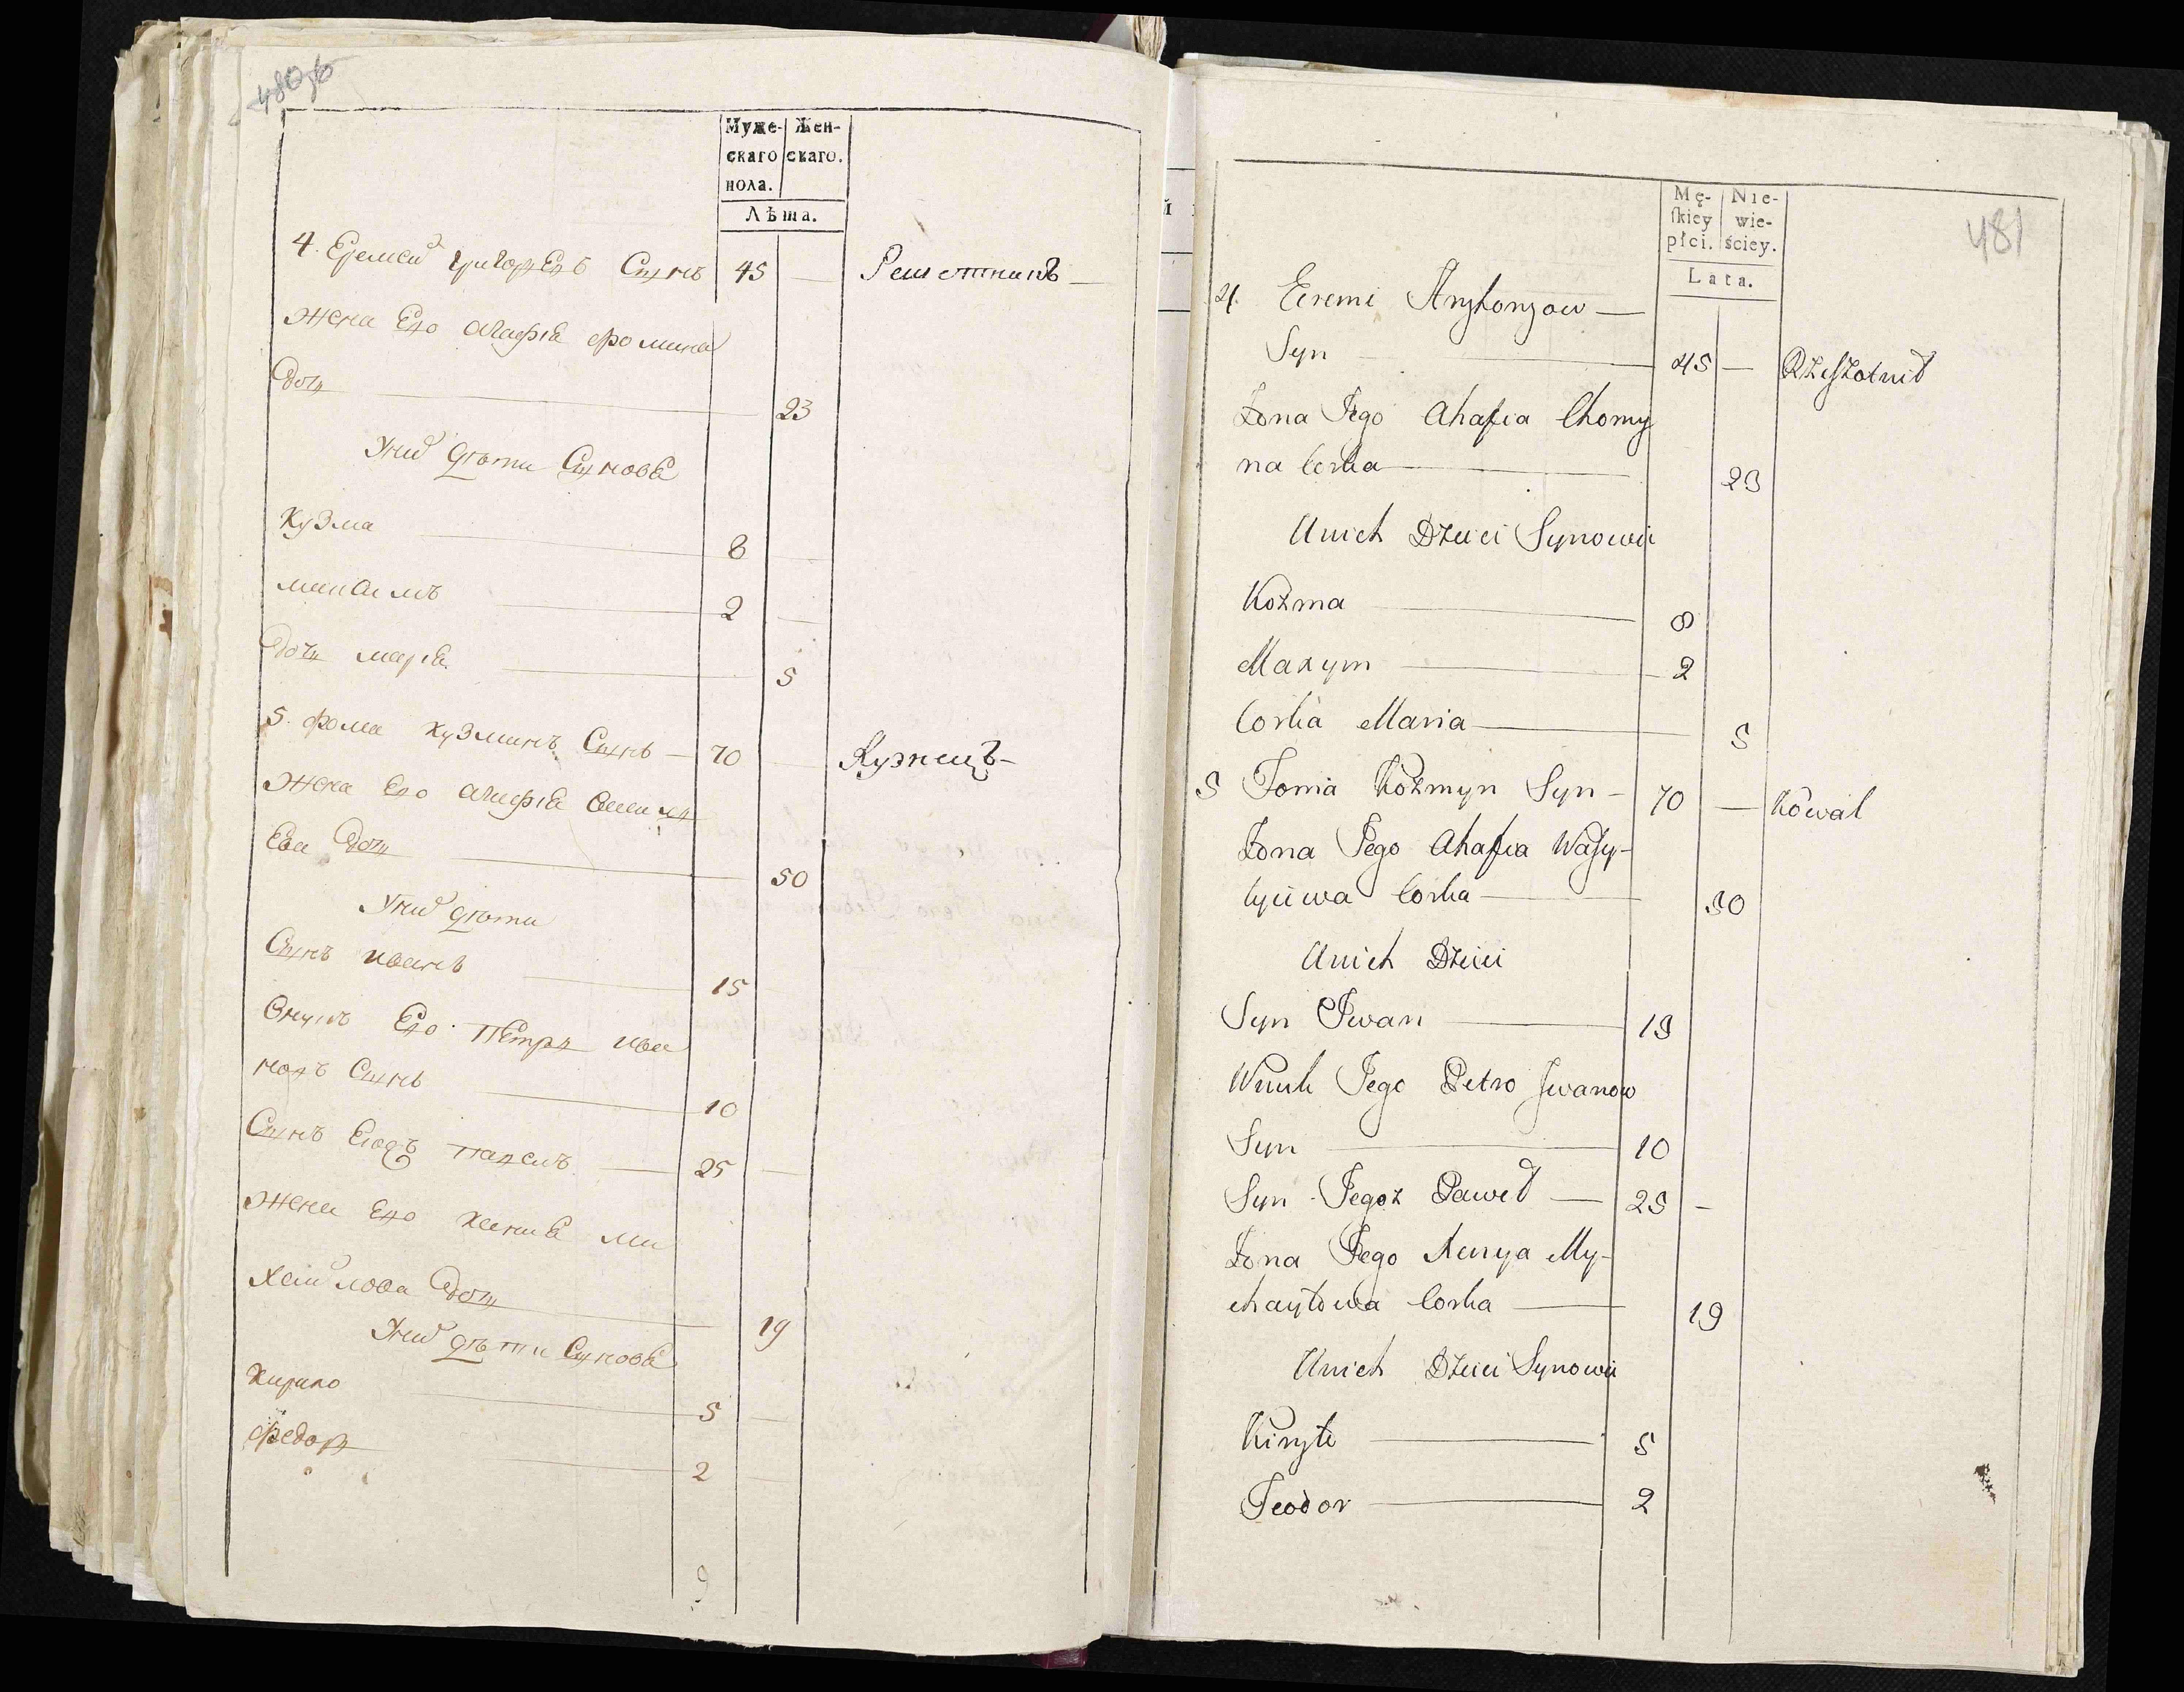 480об
Муже- Жен-
скаго скаго.
пола.
Лѣта.
4. Еремей Григорьевъ Сынъ 45 — Решетникъ —
жена Его Агафiя Фомина
дочь 23
Уних дѣти Сыновя
Кузма 8 —
максимъ 2 —
Дочь марiя 5
5. Фома Кузминъ Сынъ — 70 — Кузнецъ —
жена Его Агафiя Василь
Ева Дочь 50
Уних дѣти
Сынъ иванъ 15
Внукъ Его Петръ ива
новъ Сынъ 10
Сынъ Егожъ павелъ — 25 —
жена Его ксения ми
хайлова Дочь 19
Уних дѣти Сыновя
Кирило 5 —
Федоръ 2 —
9
481
Mę- Nie-
skiey wie-
płci. ściey.
Lata.
4. Eremi Hryhoryow —
Syn 45 — Rzeszotnik
Żona Jego Ahafia Chomy
na Corka 23
Unich Dzieci Synowie
Kozma 8
Maxym 2
Corka Maria 5
5 Foma Kozmyn Syn — 70 — Kowal
Żona Jego Ahafia Wasy-
lyiewa Corka 50
Unich Dzieci
Syn Iwan 15
Wnuk Jego Petro Iwanow
Syn 10
Syn Jegoż Paweł — 25 —
Żona Jego Xenya My-
chayłowa Corka 19
Unich Dzieci Synowie
Kiryło 5
Feodor 2